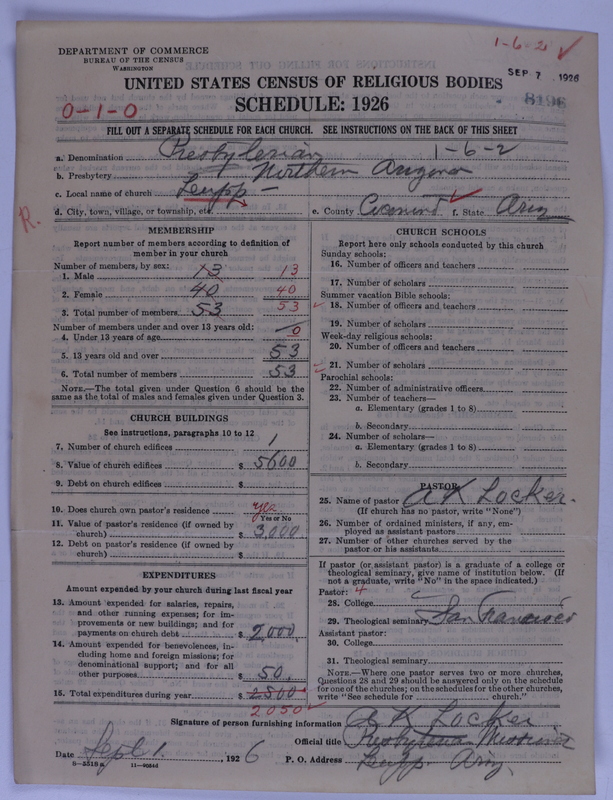 1-6-2
DEPARTMENT OF COMMERCE
BUREAU OF THE CENSUS
WASHINGTON
UNITED STATES CENSUS OF RELIGIOUS BODIES
SEP 7 1926
SCHEDULE: 1926
8196
0-1-0
FILL OUT A SEPARATE SCHEDULE FOR EACH CHURCH. SEE INSTRUCTIONS ON THE BACK OF THIS SHEET
a. Denomination Presbyterian 1-6-2
b. Presbytery Northern Arizona
c. Local name of church Leupp
d. City, town, village, or township, etc.
e. County Coconino f. State Ariz
R.
MEMBERSHIP
Report number of members according to definition of member in your church
Number of members, by sex:
1. Male 13 13
2. Female 40 40
3. Total number of members 53 53
Number of members under and over 13 years old:
4. Under 13 years of age 0
5. 13 years old and over 53
6. Total number of members 53
NOTE.—The total given under Question 6 should be
same as the total of males and females given under Question 3.
CHURCH BUILDINGS
See instructions, paragraphs 10 to 12
7. Number of church edifices 1
8. Value of church edifices $ 5600
9. Debt on church edifices $
10. Does church own pastor's residence yes
Yes or No
11. Value of pastor's residence (if owned by
church) $ 3,000
12. Debt on pastor's residence (if owned by
church) $
EXPENDITURES
Amount expended by your church during last fiscal year
13. Amount expended for salaries, repairs,
and other running expenses; for im-
provements or new buildings; and for
payments on church debt $ 2,000
14. Amount expended for benevolences, in-
cluding home and foreign missions; for
denominational support; and for all
other purposes $ 50
15. Total expenditures during year $ 2500
2050
CHURCH SCHOOLS
Report here only schools conducted by this church
Sunday schools:
16. Number of officers and teachers
17. Number of scholars
Summer vacation Bible schools:
18. Number of officers and teachers
19. Number of scholars
Week-day religious schools:
20. Number of officers and teachers
21. Number of scholars
Parochial schools:
22. Number of administrative officers
23. Number of teachers—
a. Elementary (grades 1 to 8)
b. Secondary
24. Number of scholars—
a. Elementary (grades 1 to 8)
b. Secondary
PASTOR
25. Name of pastor A K Locker.
(If church has no pastor, write "None")
26. Number of ordained ministers, if any, em-
ployed as assistant pastors
27. Number of other churches served by the
pastor or his assistants
If pastor (or assistant pastor) is a graduate of a college or
theological seminary, give name of institution below. (If
not a graduate, write "No" in the space indicated.)
Pastor: 4
28. College
29. Theological seminary San Francisco
Assistant pastor:
30. College
31. Theological seminary
NOTE.—Where one pastor serves two or more churches,
Questions 28 and 29 should be answered only on the schedule
for one of the churches; on the schedules for the other churches,
write "See schedule for church."
Signature of person furnishing information A K Locker
Official title Presbyterian Missionary
Date Sept 1, 1926 P. O. Address Leupp. Ariz,
8-5518a 11-9034d